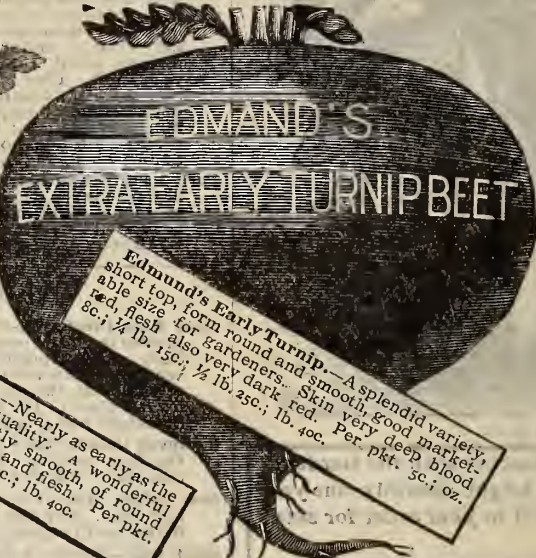 EDMAND'S
EXTRA EARLY TURNIP BEET
Edmund's Early Turnip.—A splendid variety,
short top, form round and smooth, good market-
able size for gardeners. Skin very deep blood
red, flesh also very dark red. Per pkt. 5c.; oz.
8c.; ¼ lb. 15c.; ½ lb. 25c.; lb. 40c.
—Nearly as early as the
A wonderful
smooth, of round
and flesh. Per pkt.
lb. 40c.